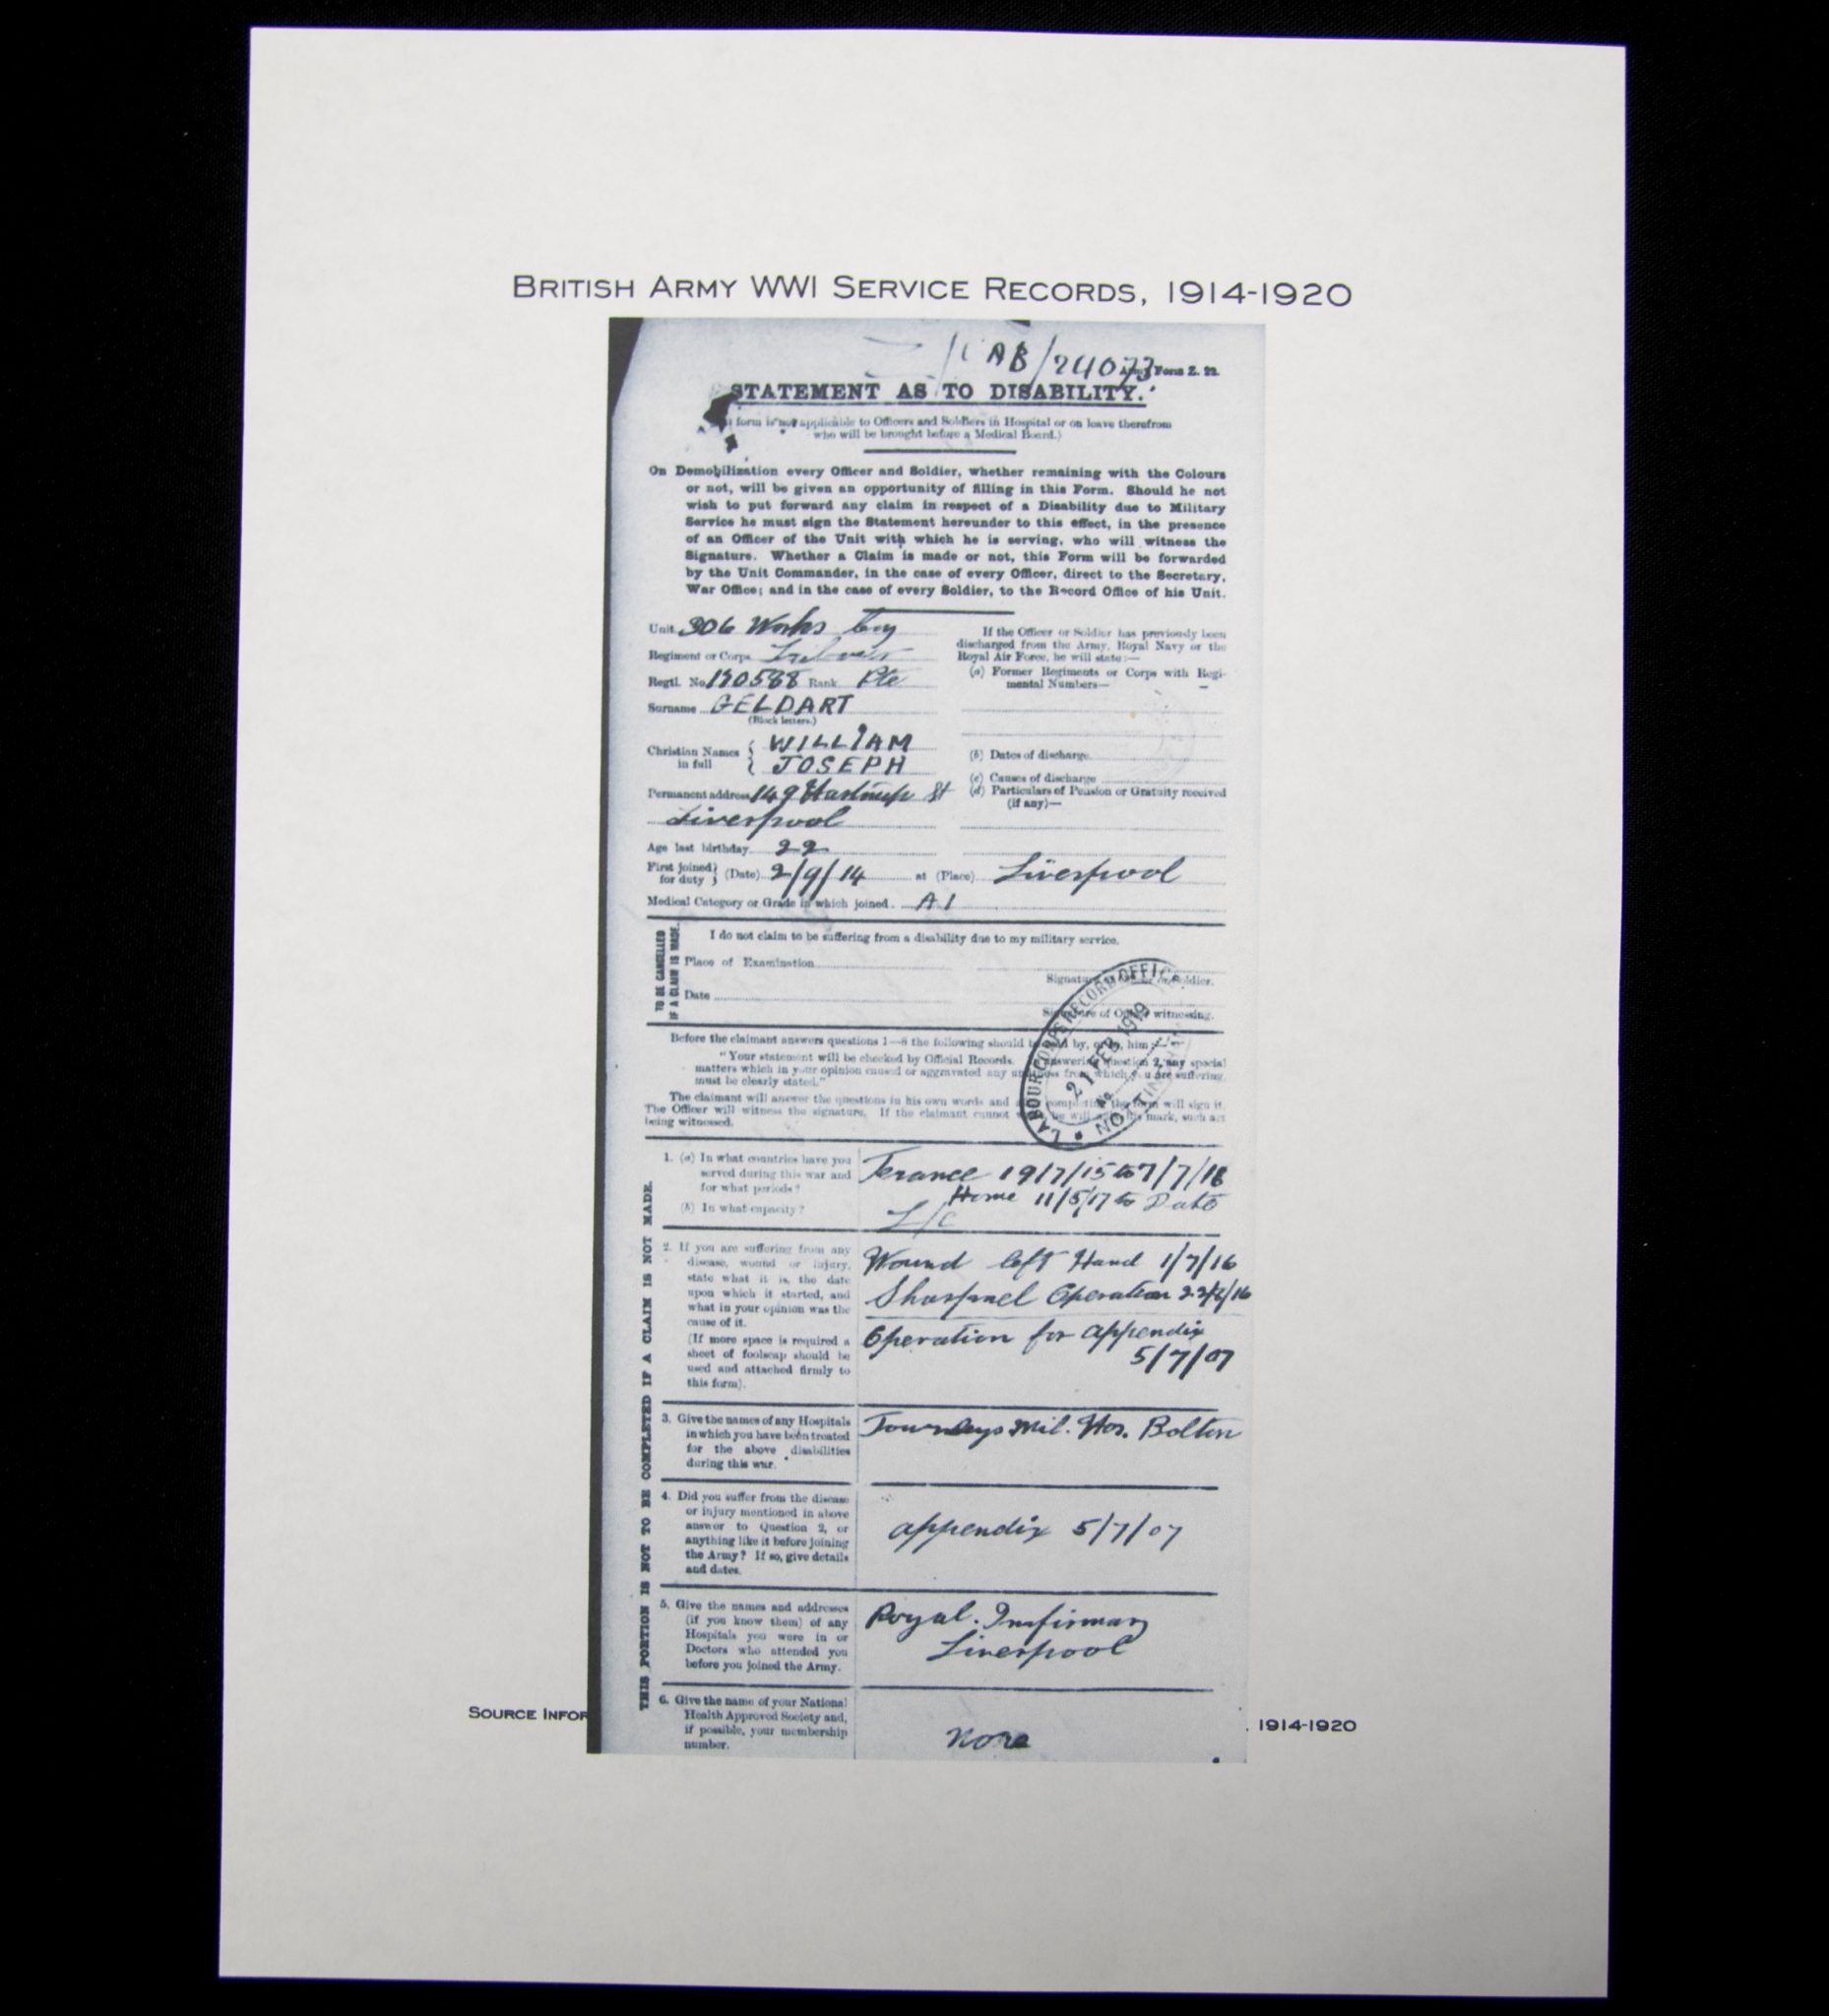 BRITISH ARMY WWI SERVICE RECORDS, 1914-1920
AB/24073 Army Form Z. 22.
STATEMENT AS TO DISABILITY.
form is not applicable to Officers and Soldiers in Hospital or on leave therefrom
who will be brought before a Medical Board.)
On Demobilization every Officer and Soldier, whether remaining with the Colours
or not, will be given an opportunity of filling in this Form. Should he not
wish to put forward any claim in respect of a Disability due to Military
Service he must sign the Statement hereunder to this effect, in the presence
of an Officer of the Unit with which he is serving, who will witness the
Signature. Whether a Claim is made or not, this Form will be forwarded
by the Unit Commander, in the case of every Officer, direct to the Secretary,
War Office; and in the case of every Soldier, to the Record Office of his Unit.
Unit 306 Works Coy
Regiment or Corps Labour
Regtl. No. 190588 Rank Pte
Surname GELDART
(Block letters.)
Christian Names in full { WILLIAM
JOSEPH
Permanent address 149 St
Liverpool
Age last birthday 22
If the Officer or Soldier has previously been
discharged from the Army, Royal Navy or the
Royal Air Force, he will state:—
(a) Former Regiments or Corps with Regi-
mental Numbers—
(b) Dates of discharge
(c) Causes of discharge
(d) Particulars of Pension or Gratuity received
(if any)—
First joined for duty } (Date) 2/9/14 at (Place) Liverpool
Medical Category or Grade in which joined. A1
TO BE CANCELLED
IF A CLAIM IS MADE.
I do not claim to be suffering from a disability due to my military service.
Place of Examination
Signature Soldier.
Date
Signature of Officer witnessing.
LABOUR CORPS RECORD OFFICE
21 FEB 1919
No.
NOTTINGHAM
Before the claimant answers questions 1—8 the following should be read by, or to, him:—
"Your statement will be checked by Official Records. In answering question 2, any special
matters which in your opinion caused or aggravated any illness from which you are suffering,
must be clearly stated."
The claimant will answer the questions in his own words and completing the form will sign it.
The Officer will witness the signature. If the claimant cannot he will his mark, such act
being witnessed.
THIS PORTION IS NOT TO BE COMPLETED IF A CLAIM IS NOT MADE.
1. (a) In what countries have you
served during this war and
for what periods?
(b) In what capacity?
France 19/7/15 to 7/7/16
Home 11/5/17 to Date
L/c
2. If you are suffering from any
disease, wound or injury,
state what it is, the date
upon which it started, and
what in your opinion was the
cause of it.
(If more space is required a
sheet of foolscap should be
used and attached firmly to
this form).
Wound left Hand 1/7/16
Sharpnel Operation
Operation for appendix
5/7/07
3. Give the names of any Hospitals
in which you have been treated
for the above disabilities
during this war.
Townleys Mil. Hos. Bolton
4. Did you suffer from the disease
or injury mentioned in above
answer to Question 2, or
anything like it before joining
the Army? If so, give details
and dates.
appendix 5/7/07
5. Give the names and addresses
(if you know them) of any
Hospitals you were in or
Doctors who attended you
before you joined the Army.
Royal. Infirmary
Liverpool
6. Give the name of your National
Health Approved Society and,
if possible, your membership
number.
None
SOURCE INFOR
1914-1920